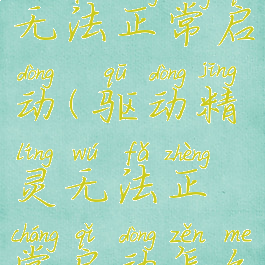 无法正常启
dòng qū dòng jīng
动(驱动精
líng wú fǎ zhèng
灵无法正
cháng qǐ dòng zěn me
常启动怎么